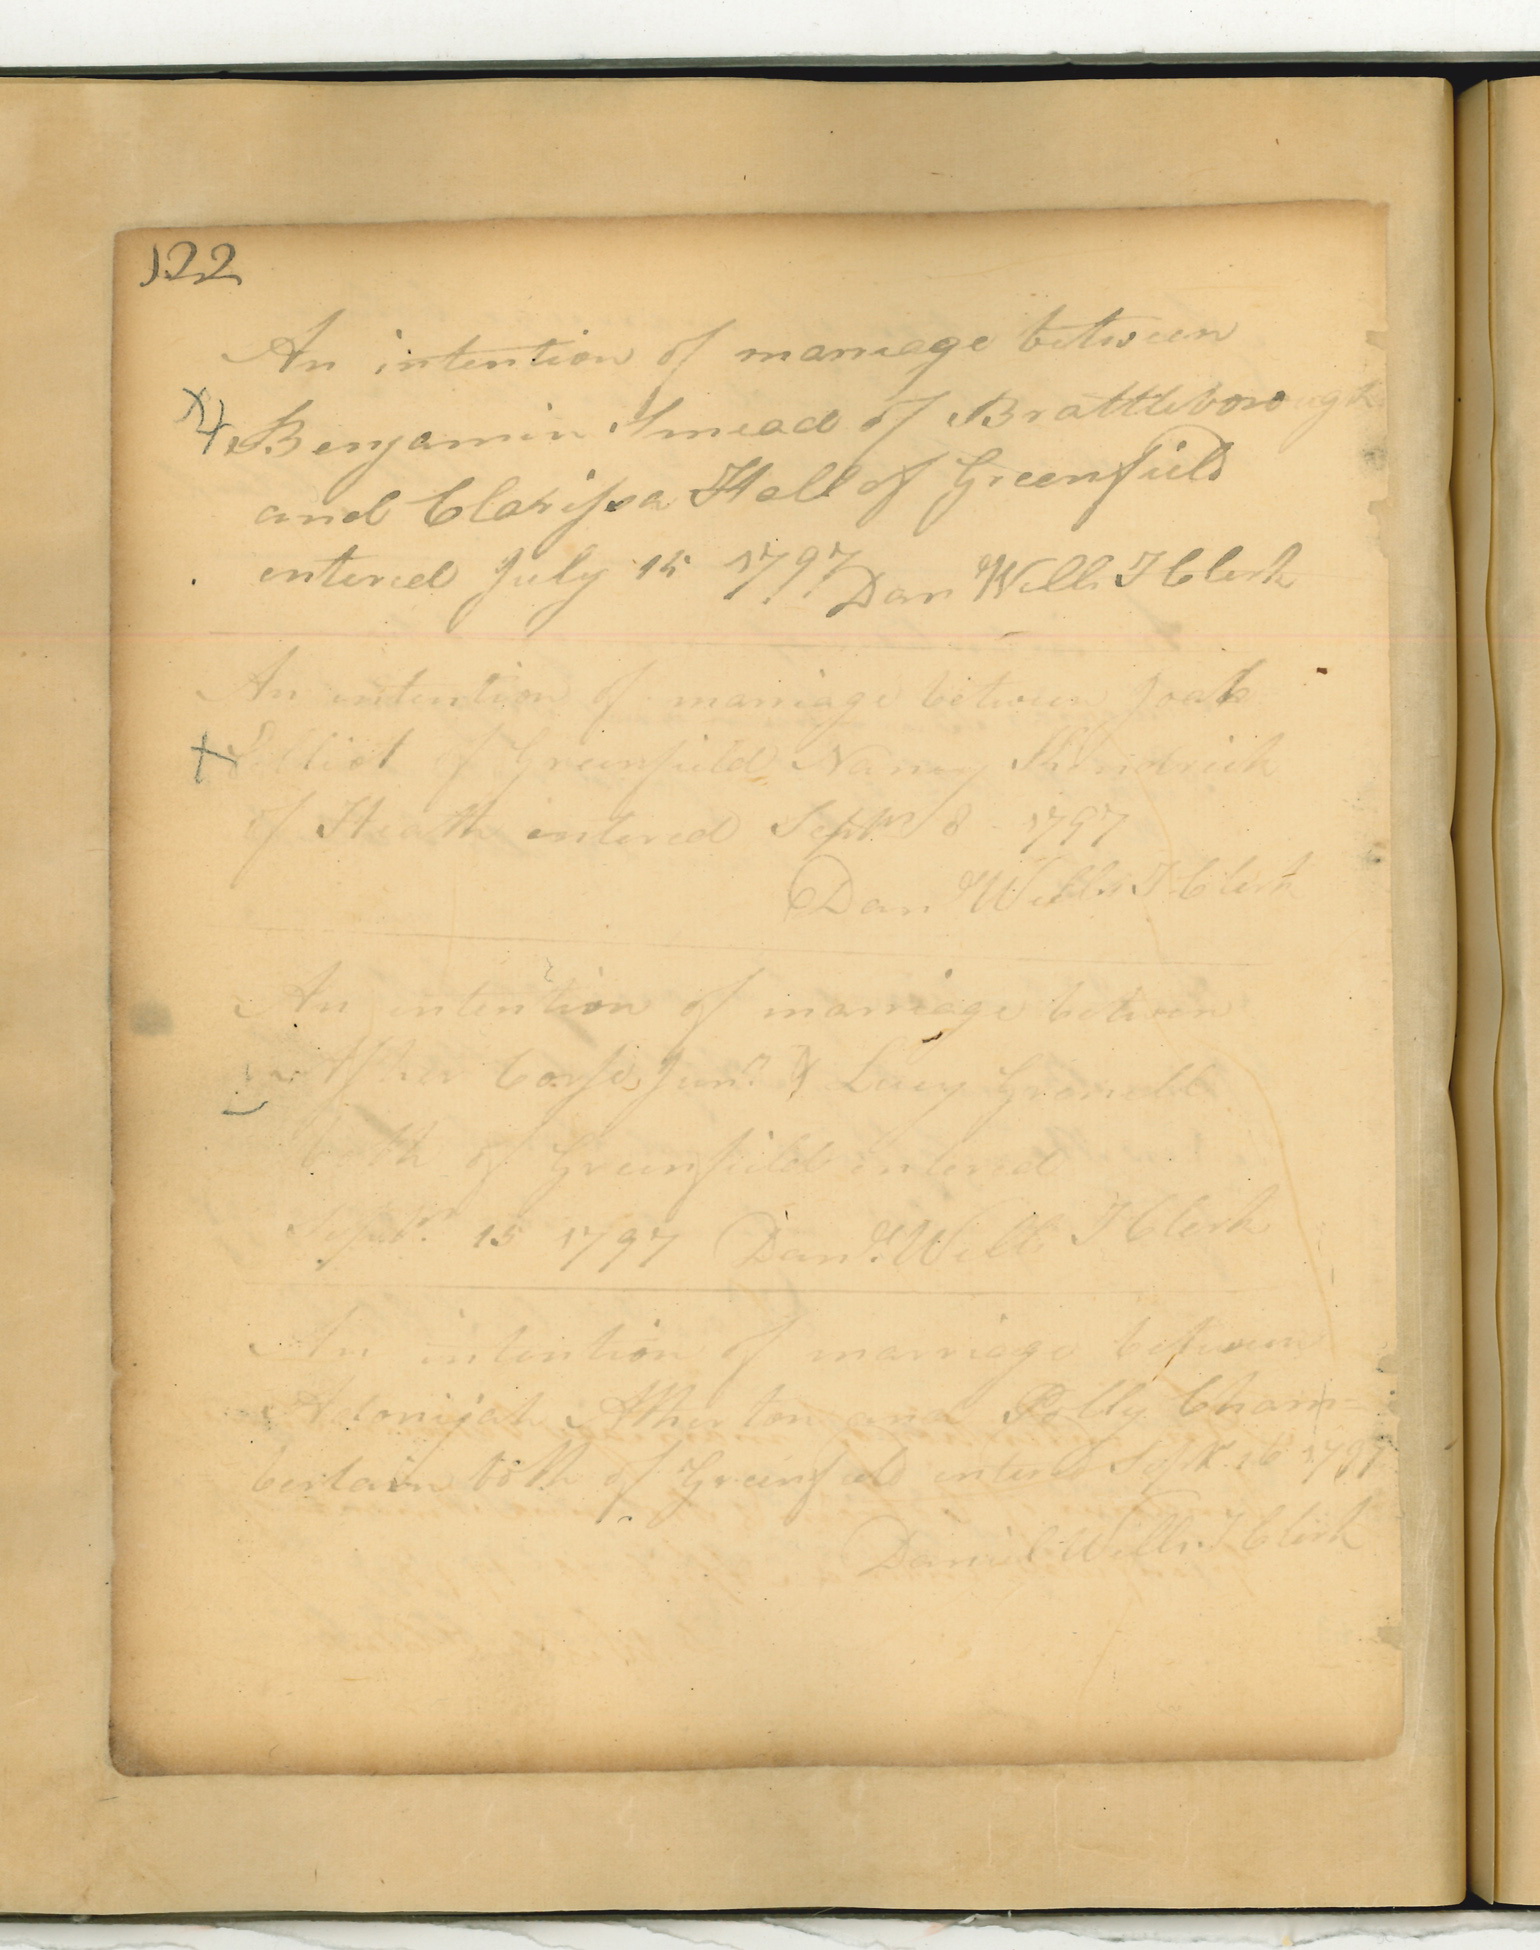 122
An intention of marriage between
Benjamin Smead of Brattleborough
and Clarissa Hall of Greenfield
entered July 15 1797 Dan Wells T Clerk
An intention of marriage between Joab
of Greenfield Nancy Kendrick
of Heath entered Septr 8 1797
Dan Wells T Clerk
An intention of marriage between
Asher Corse Junr & Lucy Grenell
both of Greenfield entered
Septr 15 1797 Danl Wells T Clerk
An intention of marriage between
Adonijah Atherton and Polly Cham=
berlain both of Greenfield entered Septr 16 1797
Daniel Wells T Clerk